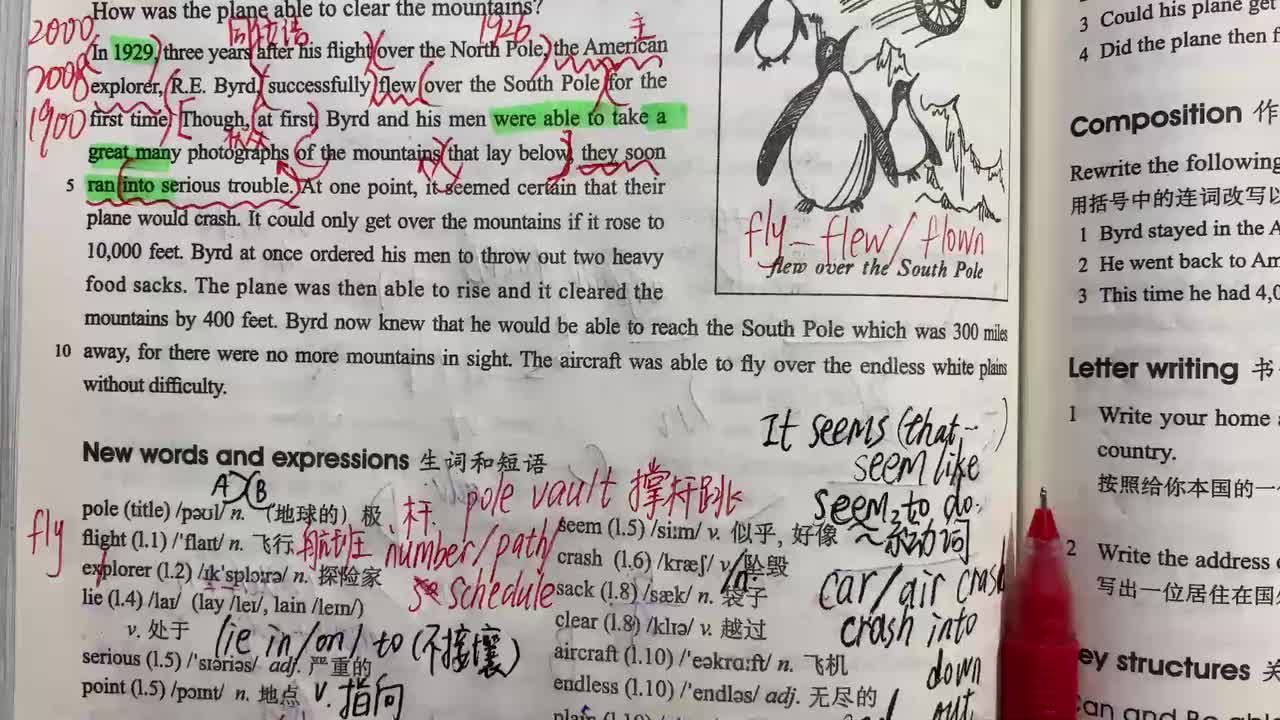 How was the plane able to clear the mountains?
2000
同位语
1926
主
In 1929, three years after his flight over the North Pole, the American
2008
explorer, R.E. Byrd, successfully flew over the South Pole for the
1900
first time. Though, at first, Byrd and his men were able to take a
great many photographs of the mountains that lay below, they soon
5 ran into serious trouble. At one point, it seemed certain that their
plane would crash. It could only get over the mountains if it rose to
10,000 feet. Byrd at once ordered his men to throw out two heavy
food sacks. The plane was then able to rise and it cleared the
mountains by 400 feet. Byrd now knew that he would be able to reach the South Pole which was 300 miles
10 away, for there were no more mountains in sight. The aircraft was able to fly over the endless white plains
without difficulty.
fly - flew / flown
flew over the South Pole
It seems (that...)
seem like
seem to do
~ 系动词
New words and expressions 生词和短语
A B
pole vault 撑杆跳
pole (title) /pəʊl/ n. (地球的) 极 、杆
fly
flight (l.1) /flaɪt/ n. 飞行 航班 number/path/
schedule
explorer (l.2) /ɪk'splɔːrə/ n. 探险家
lie (l.4) /laɪ/ (lay /leɪ/, lain /leɪn/)
v. 处于 lie in/on/to (不接壤)
serious (l.5) /'sɪəriəs/ adj. 严重的
point (l.5) /pɔɪnt/ n. 地点 v. 指向
seem (l.5) /siːm/ v. 似乎, 好像
crash (l.6) /kræʃ/ v. 坠毁
/n.
sack (l.8) /sæk/ n. 袋子
clear (l.8) /klɪə/ v. 越过
aircraft (l.10) /'eəkrɑːft/ n. 飞机
endless (l.10) /'endləs/ adj. 无尽的
plain (l.10)
car/air crash
crash into
down
out
3 Could his plane get
4 Did the plane then f
Composition 作
Rewrite the following
用括号中的连词改写以
1 Byrd stayed in the A
2 He went back to Am
3 This time he had 4,0
Letter writing 书
1 Write your home a
country.
按照给你本国的一
2 Write the address o
写出一位居住在国外
ey structures 关
Can and Be able